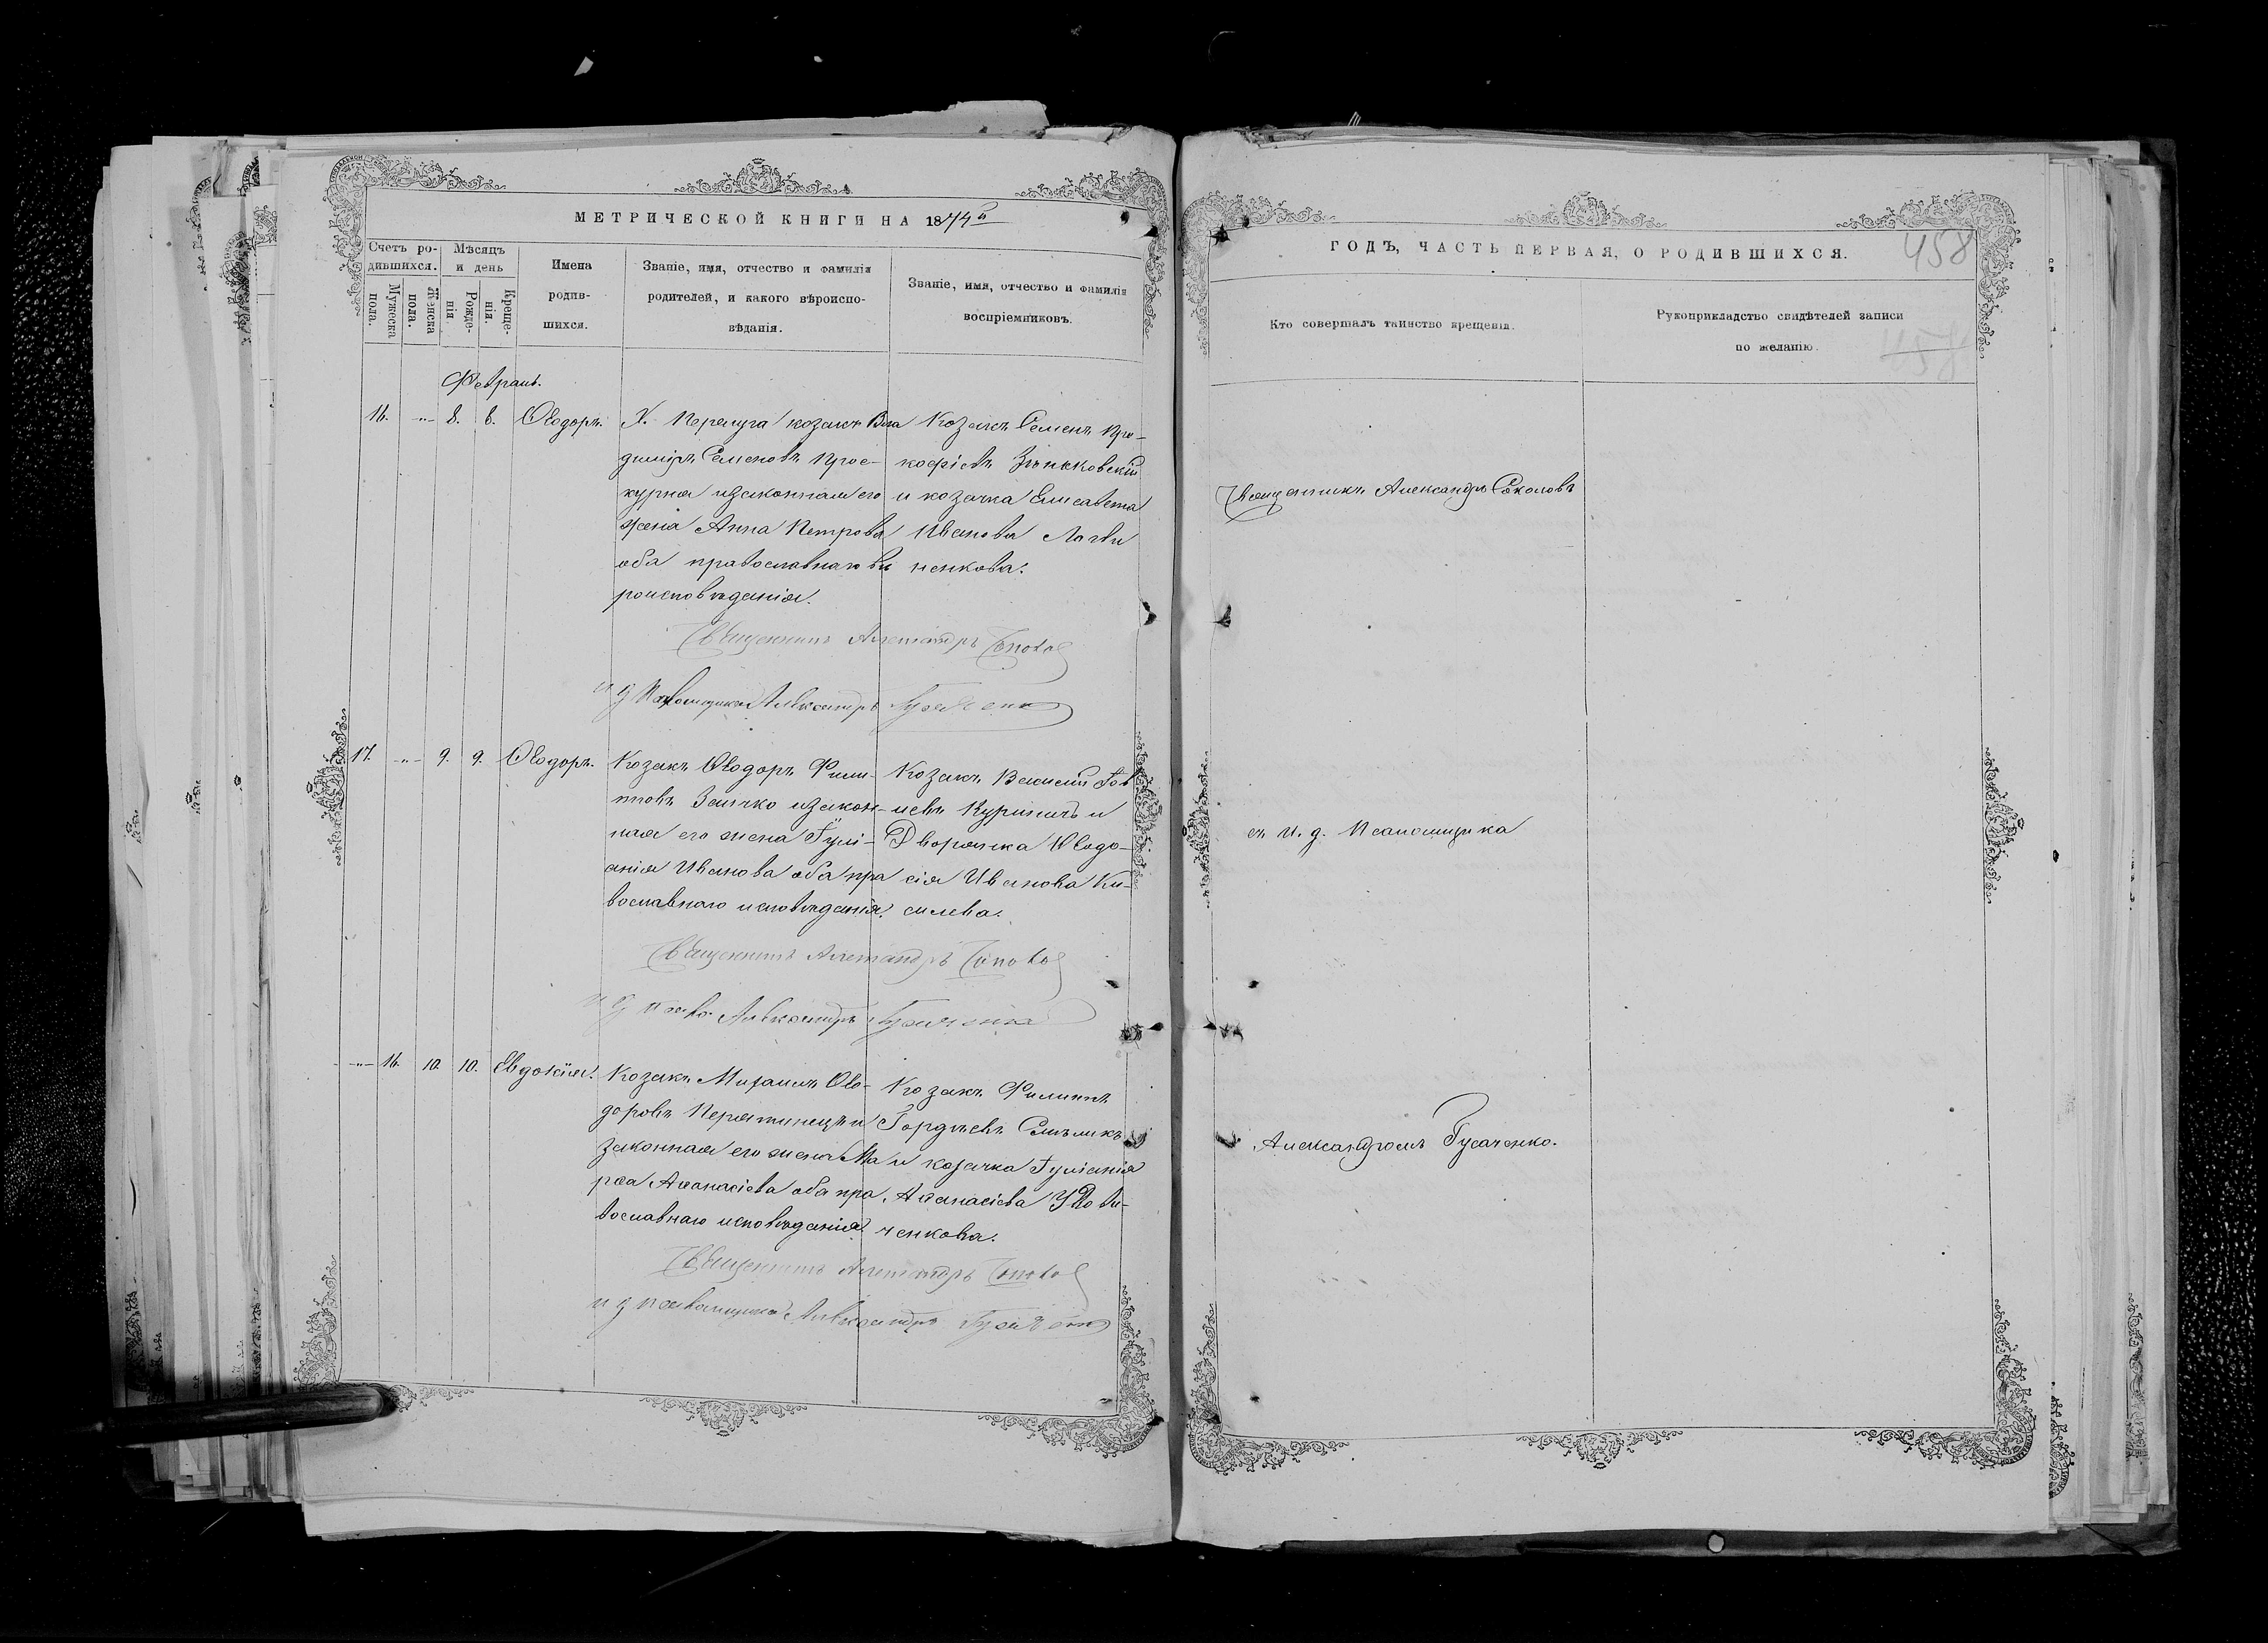 МЕТРИЧЕСКОЙ КНИГИ НА 1874й
Счетъ ро-
дившихся.
Мужеска пола.
Женска пола.
Мѣсяцъ
и день
Рожде-
нія
Креще-
нія.
Имена
родив-
шихся.
Званіе, имя, отчество и фамилія
родителей, и какого вѣроиспо-
вѣданія.
Званіе, имя, отчество и фамилія
воспріемниковъ.
Февраль.
16. -"- 8. 8. Ѳеодоръ.
Х. козакъ Вла
диміръ Семеновъ Прос-
курня и законная его
жена Анна Петрова
оба православнаго вѣ
роисповѣданія.
Козакъ Семенъ Про-
кофіевъ Зѣньковскій
и козачка Елисавета
Иванова Логви
ненкова.
Священникъ Александръ
и д Псаломщика Александръ Гусаченко
17. -"- 9. 9. Ѳеодоръ.
Козакъ Ѳеодоръ Фили-
повъ Заичко и закон-
ная его жена Іулі-
анія Иванова оба пра
вославнаго исповѣданія.
Козакъ Василій
и
Дворянка Ѳеодо-
сія Иванова Ки-
силева.
Священникъ Александръ
и д Александръ Гусаченко
-"- 16. 10. 10. Евдокія.
Козакъ Михаилъ Ѳео-
доровъ Перятинецъ и
законная его жена Ма
рѳа Аѳанасіева оба пра
вославнаго исповѣданія.
Козакъ Филиппъ
Гордѣевъ
и козачка Іуліанія
Аѳанасіева Удови-
ченкова.
Священникъ Александръ
и д псаломщика Александръ Гусаченко
ГОДЪ, ЧАСТЬ ПЕРВАЯ, О РОДИВШИХСЯ.
458
Кто совершалъ таинство крещенія.
Рукоприкладство свидѣтелей записи
по желанію.
458
Священникъ Александръ Соколовъ
съ и. д. Псаломщика
Александромъ Гусаченко.